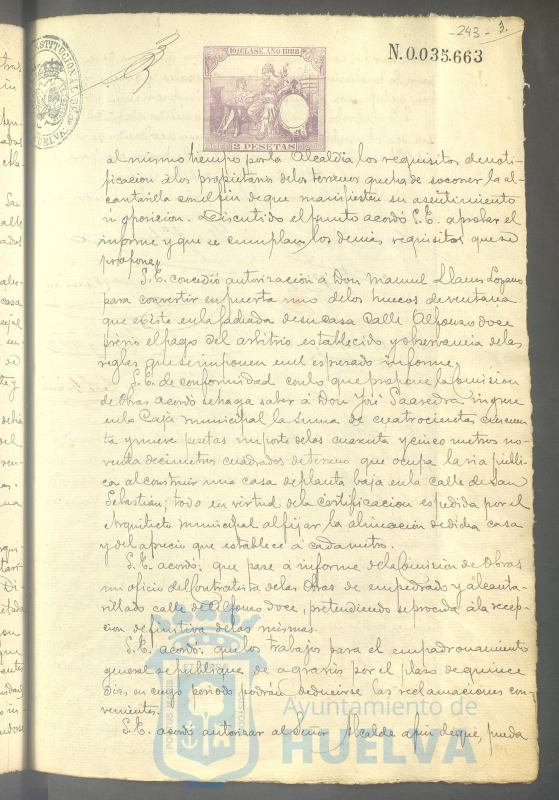 -243- 3.
N.0.035.663
CONSTITUCIONAL DE HUELVA
10ª CLASE. AÑO 1888
2 PESETAS
al mismo tiempo por la Alcaldia los requisitos de noti-
ficacion á los propietarios de los terrenos que ha de socorrer la al-
cantarilla con el fin de que manifiesten su asentimiento
ú oposicion. Discutido el punto acordó S.E. aprobar el
informe y que se cumplan los demás requisitos que se
propone.
S.E. concedió autorización á Don Manuel Llanes Lozano
para convertir en puerta uno de los huecos de ventana
que existe en la fachada de su casa Calle Alfonso doce
prévio el pago del arbitrio establecido y observancia de las
reglas que se imponen en el espresado informe.
S.E. de conformidad con lo que propone la Comision
de Obras acordó se haga saber á Don José Saavedra ingrese
en la Caja municipal la suma de cuatrocientas cincuen
ta y nueve pesetas importe de los cuarenta y cinco metros no-
venta decimetros cuadrados de terreno que ocupa la via públi-
ca al construir una casa de planta baja en la calle de San
Sebastián; todo en virtud de la certificacion espedida por el
Arquitecto municipal al fijar la alineación de dicha casa
y del aprecio que establece á cada metro.
S.E. acordó: que pase á informe de la Comision de Obras
un oficio del Contratista de las Obras de empedrado y alcanta-
rillado calle de Alfonso doce, pretendiendo se proceda á la recep-
cion definitiva de las mismas.
S.E. acordó: que los trabajos para el empadronamiento
general se publique de agravios por el plazo de quince
dias, en cuyo periodo podrán deducirse las reclamaciones con-
venientes.
S.E. acordó autorizar al Señor Alcalde a fin de que, pueda
Ayuntamiento de
HUELVA